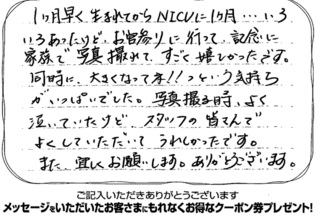 1ヶ月早く生まれてからNICUに1ヶ月…いろ
いろあったけど、お宮参りに行って、記念に
家族で写真撮れて、すごく嬉しかったです。
同時に、大きくなって本!!っという気持ち
がいっぱいでした。写真撮る時、よく
泣いていたけど スタッフの皆さんで
よくしていただいて うれしかったです。
また 宜しくお願いします。ありがとうございます。
ご記入いただきありがとうございます
メッセージをいただいたお客さまにもれなくお得なクーポン券プレゼント!